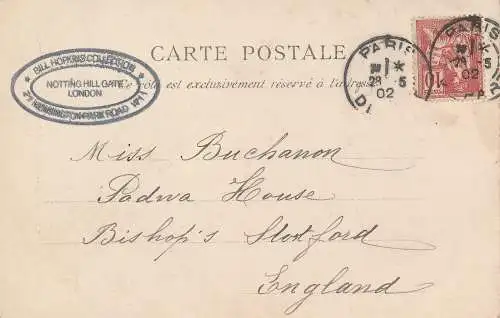 CARTE POSTALE
Ce côté est exclusivement réservé à l'adresse
BILL HOPKINS COLLECTION
NOTTING HILL GATE
LONDON
KENSINGTON PARK ROAD W11
PARIS
28 5
02
PARIS
5
02
Miss Buchanon
Padwa House
Bishop's Stortford
England